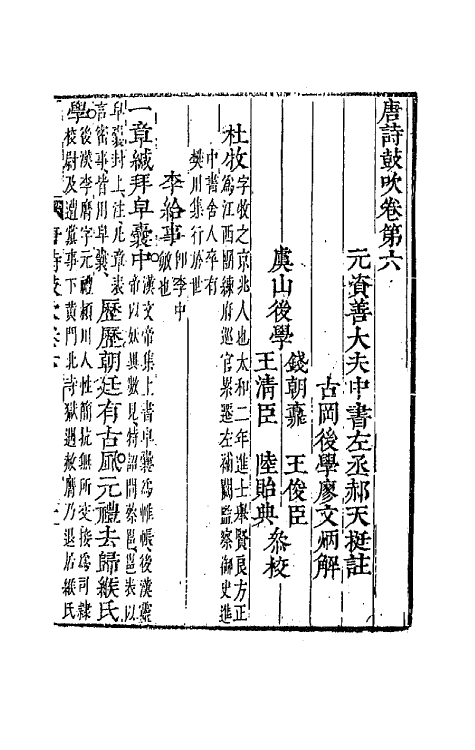 唐詩鼓吹卷第六
元資善大夫中書左丞郝天挺註
古岡後學廖文炳解
錢朝鼒　王俊臣
虞山後學
王清臣　陸貽典　叅校
杜牧字牧之京兆人也太和二年進士舉賢良方正
爲江西團練府巡官累遷左補闕監察御史進
中書舍人卒有
樊川集行於世
李給事卽李中
敏也
一章緘拜皁囊中漢文帝集上書皁囊爲帷帳後漢靈
帝以妖異數見特詔問蔡邕邕表以
皁囊封上注凡章表
言密事皆用皁囊
歷歷朝廷有古風元禮去歸緱氏
學後漢李膺字元禮潁川人性簡抗無所交接爲司隸
校尉及遭黨事下黃門北寺獄遇赦膺乃退居緱氏
唐詩鼓吹卷六